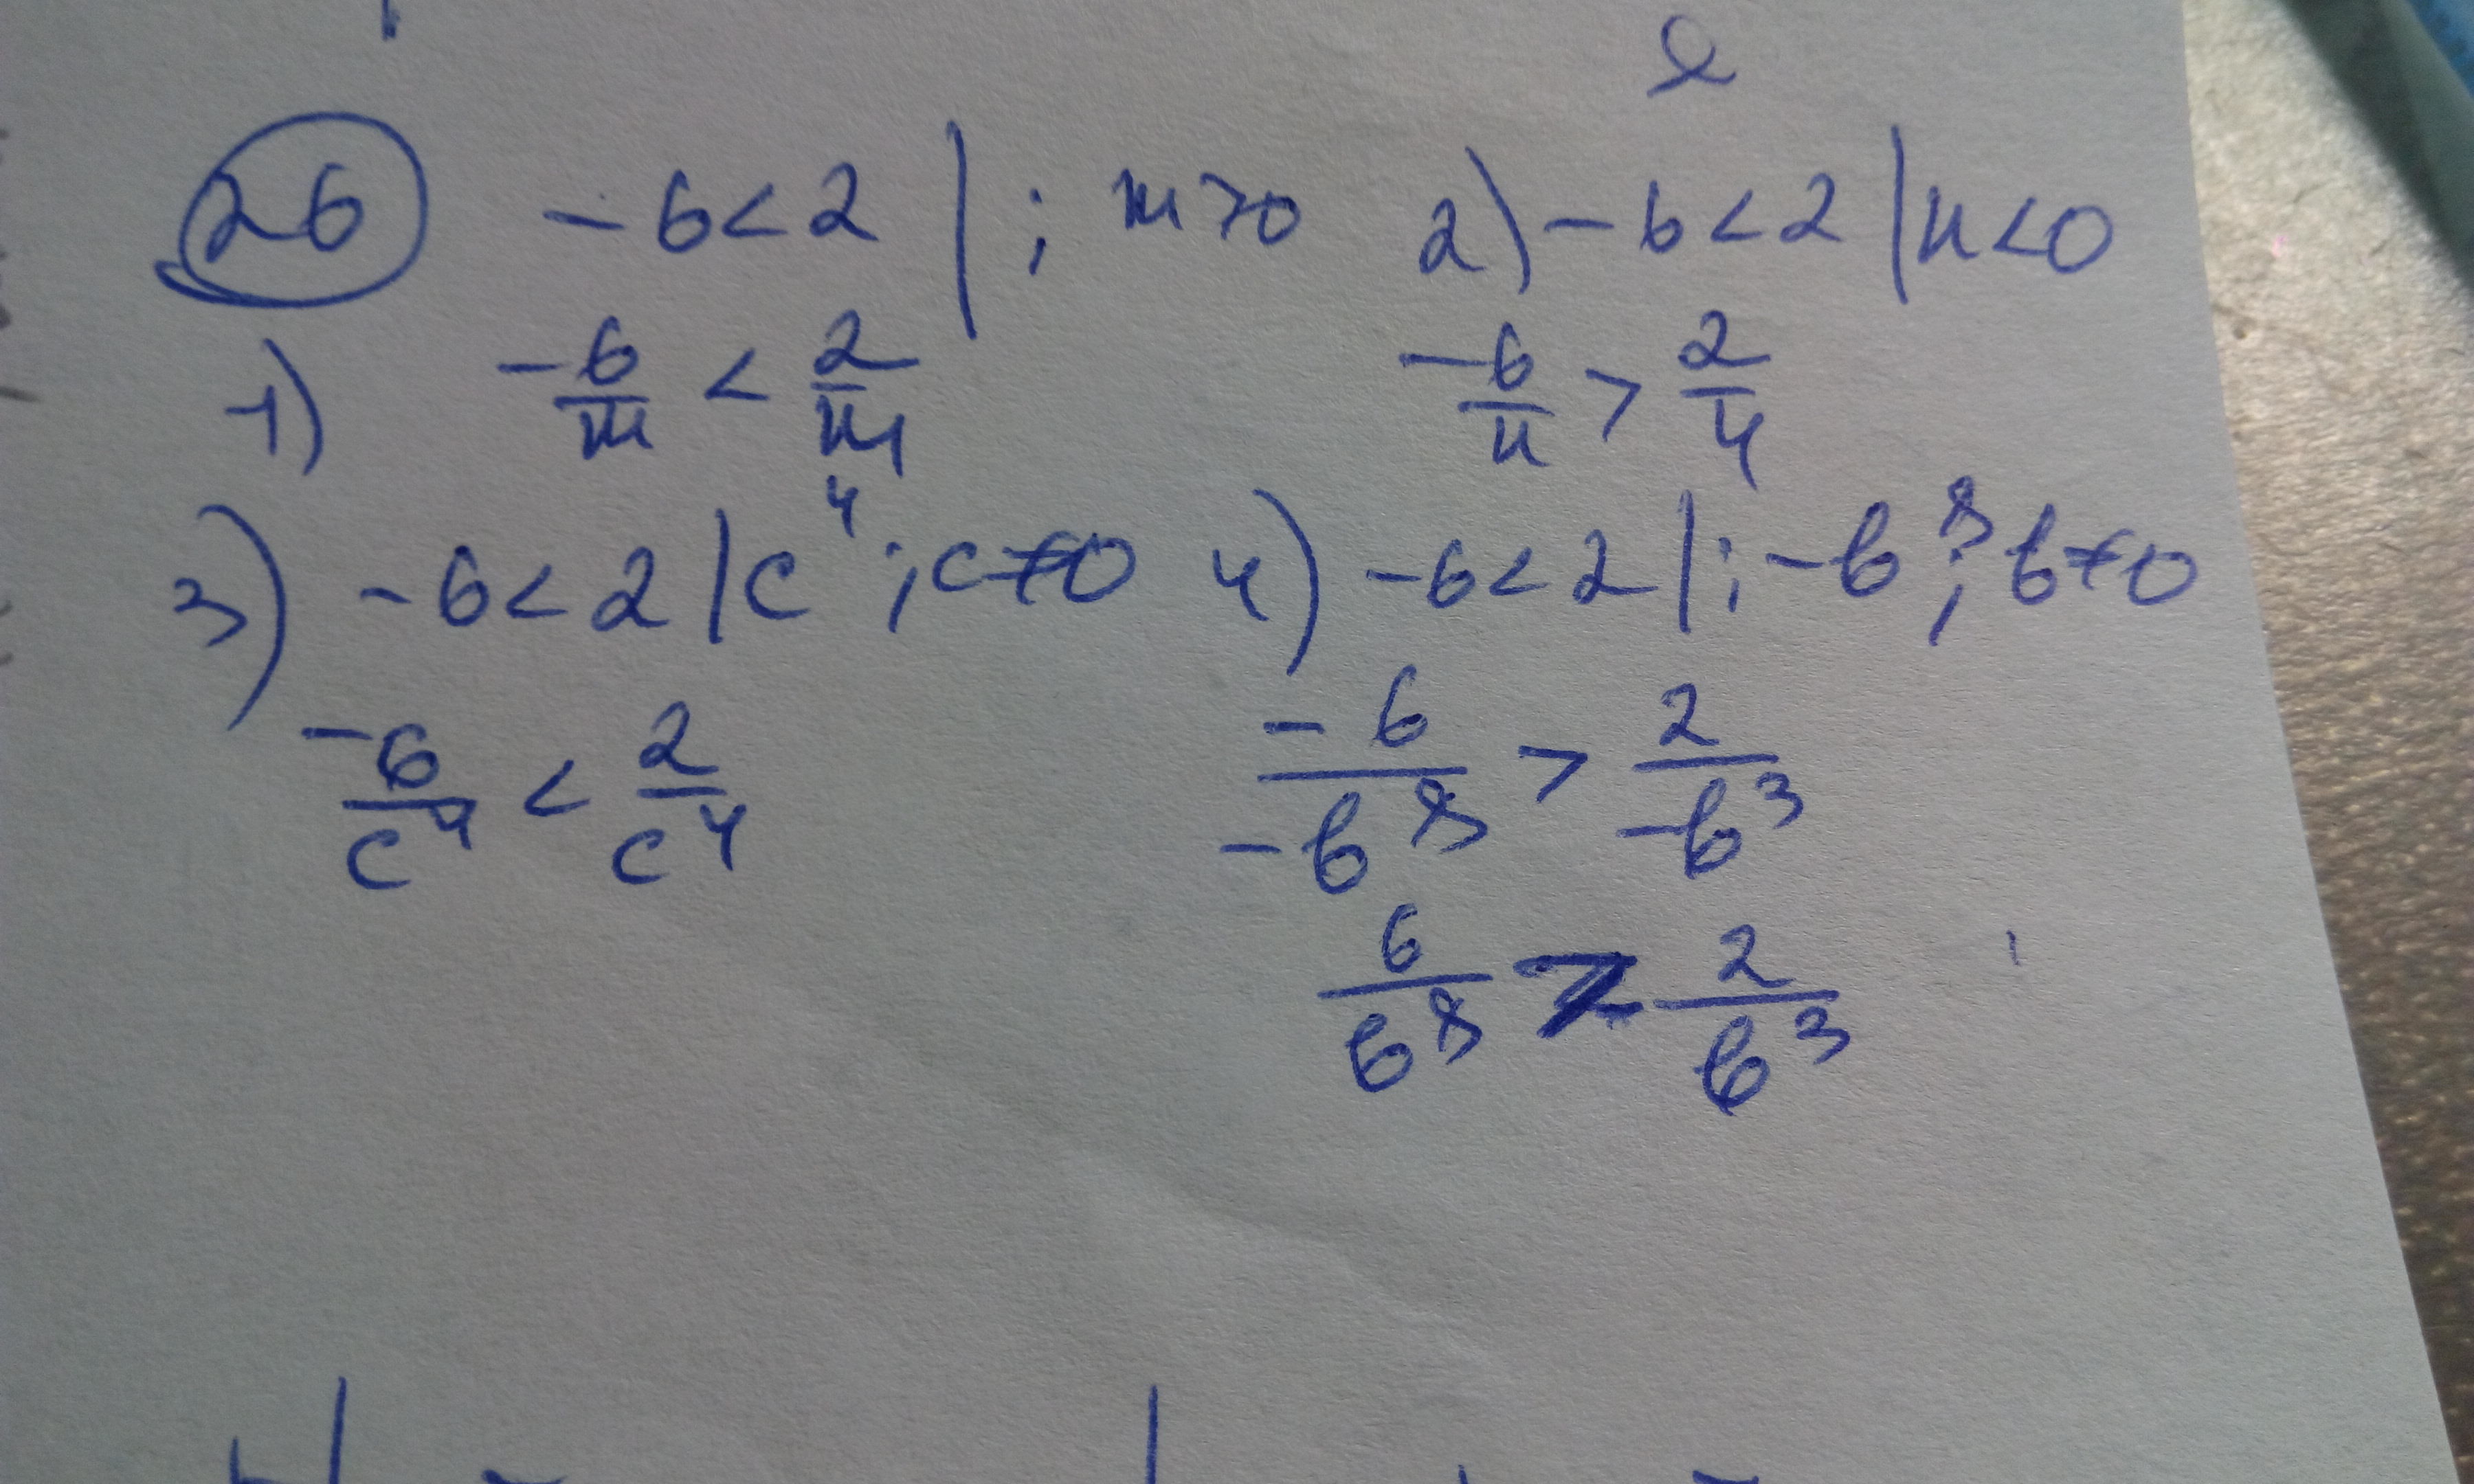 26 -6<2 | : m>0 2) -6<2 | n<0
1) -6/m < 2/m -6/n > 2/n
3) -6<2 | c⁴ ; c≠0 4) -6<2 | : -b⁸ ; b≠0
-6/c⁴ < 2/c⁴ -6/-b⁸ > 2/-b³
6/b⁸ > 2/b³